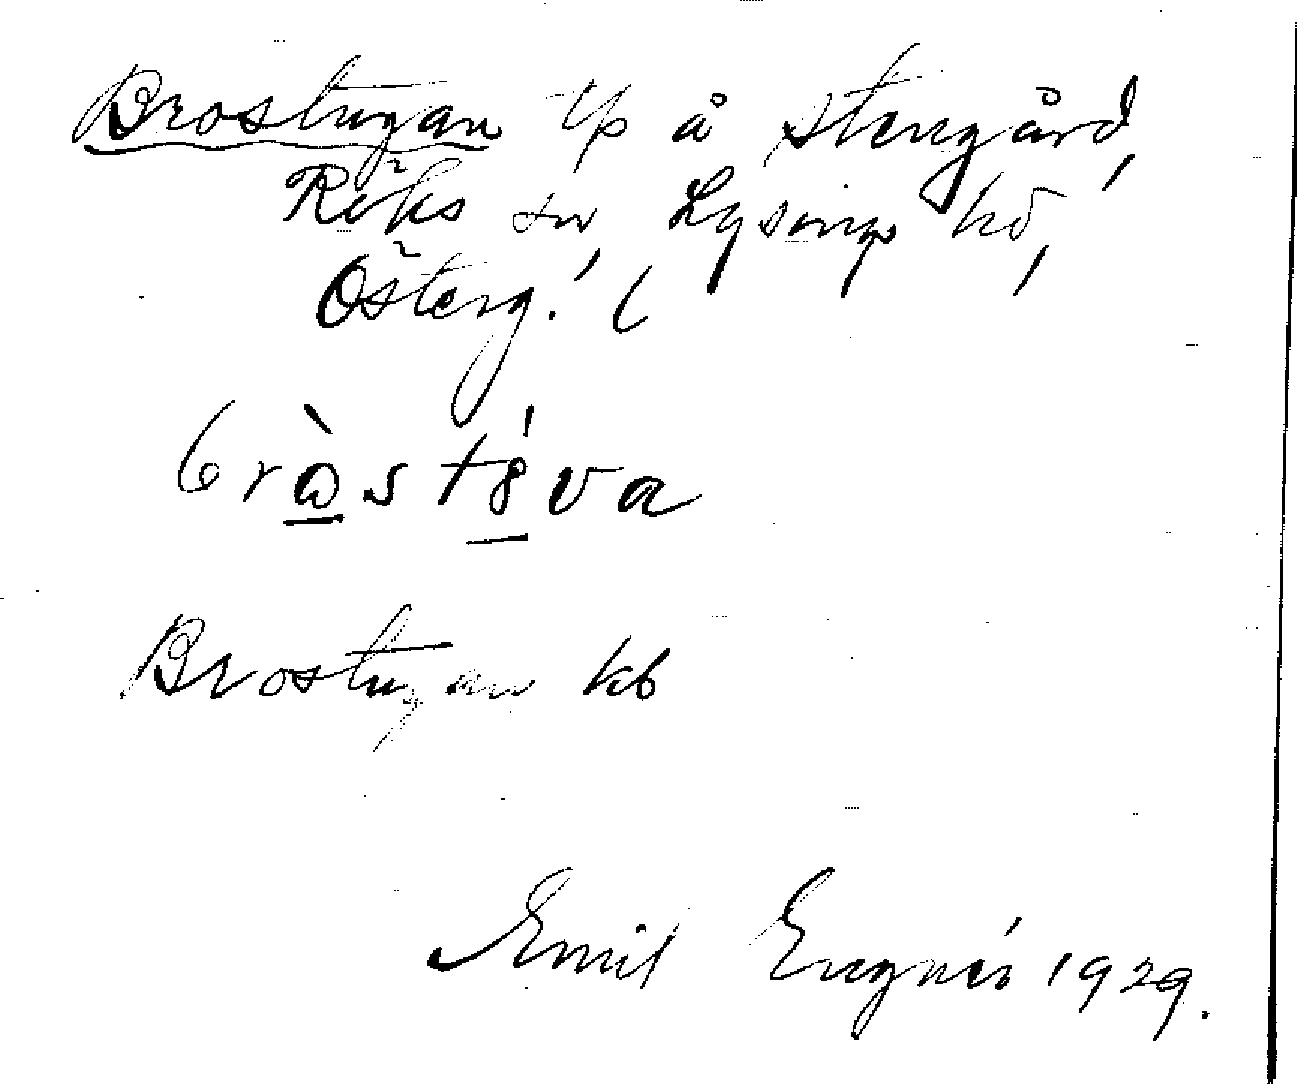 Brostugan tp å Stengård,
Röks sn, Lysings hd,
Österg. (
bròstǿva
Brostugan kb
Emil Engnés 1929.